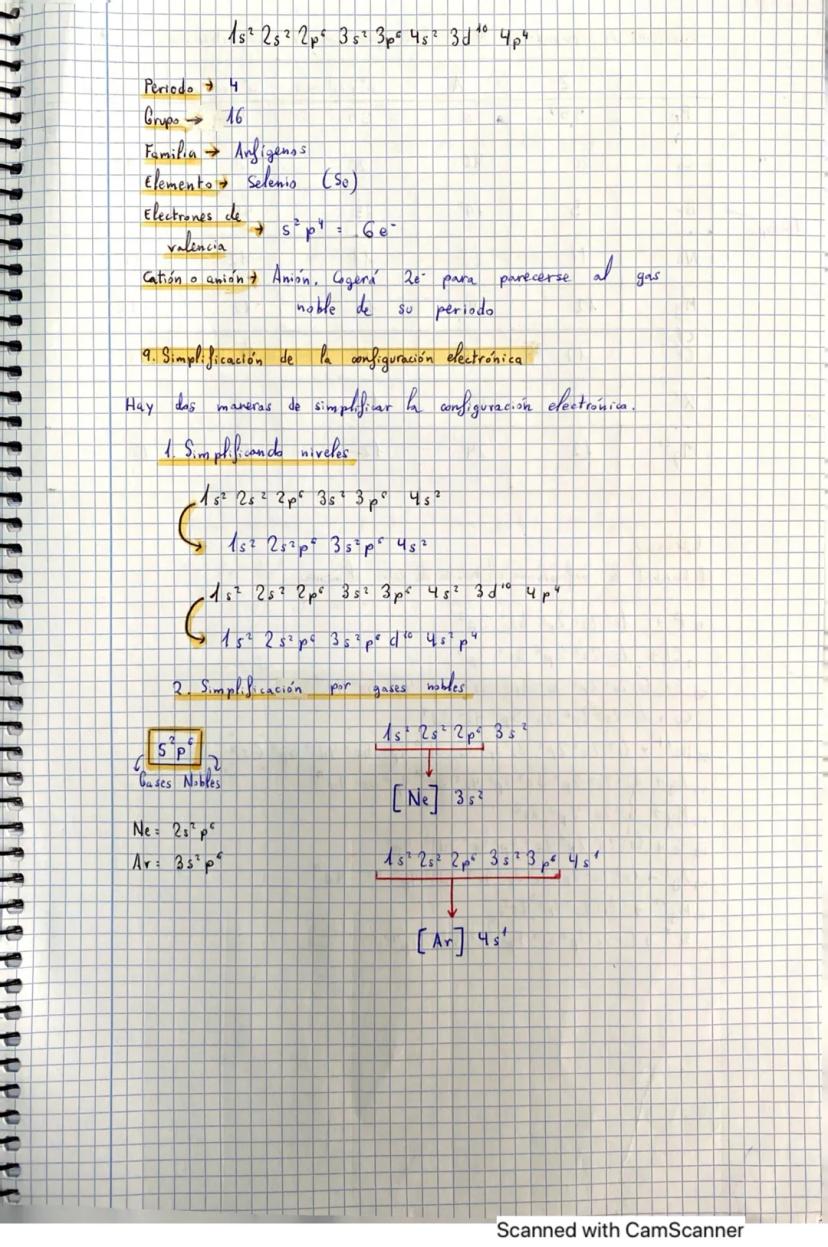 1s² 2s² 2p⁶ 3s² 3p⁶ 4s² 3d¹⁰ 4p⁴
Periodo → 4
Grupo → 16
Familia → Anfígenos
Elemento → Selenio (Se)
Electrones de
valencia → s² p⁴ = 6e⁻
Catión o anión → Anión. Cogerá 2e⁻ para parecerse al gas
noble de su periodo
9. Simplificación de la configuración electrónica
Hay dos maneras de simplificar la configuración electrónica.
1. Simplificando niveles
1s² 2s² 2p⁶ 3s² 3p⁶ 4s²
1s² 2s²p⁶ 3s²p⁶ 4s²
1s² 2s² 2p⁶ 3s² 3p⁶ 4s² 3d¹⁰ 4p⁴
1s² 2s²p⁶ 3s²p⁶d¹⁰ 4s²p⁴
2. Simplificación por gases nobles
S²p⁶
Gases Nobles
Ne = 2s²p⁶
Ar = 3s²p⁶
1s² 2s² 2p⁶ 3s²
[Ne] 3s²
1s² 2s² 2p⁶ 3s² 3p⁶ 4s¹
[Ar] 4s¹
Scanned with CamScanner